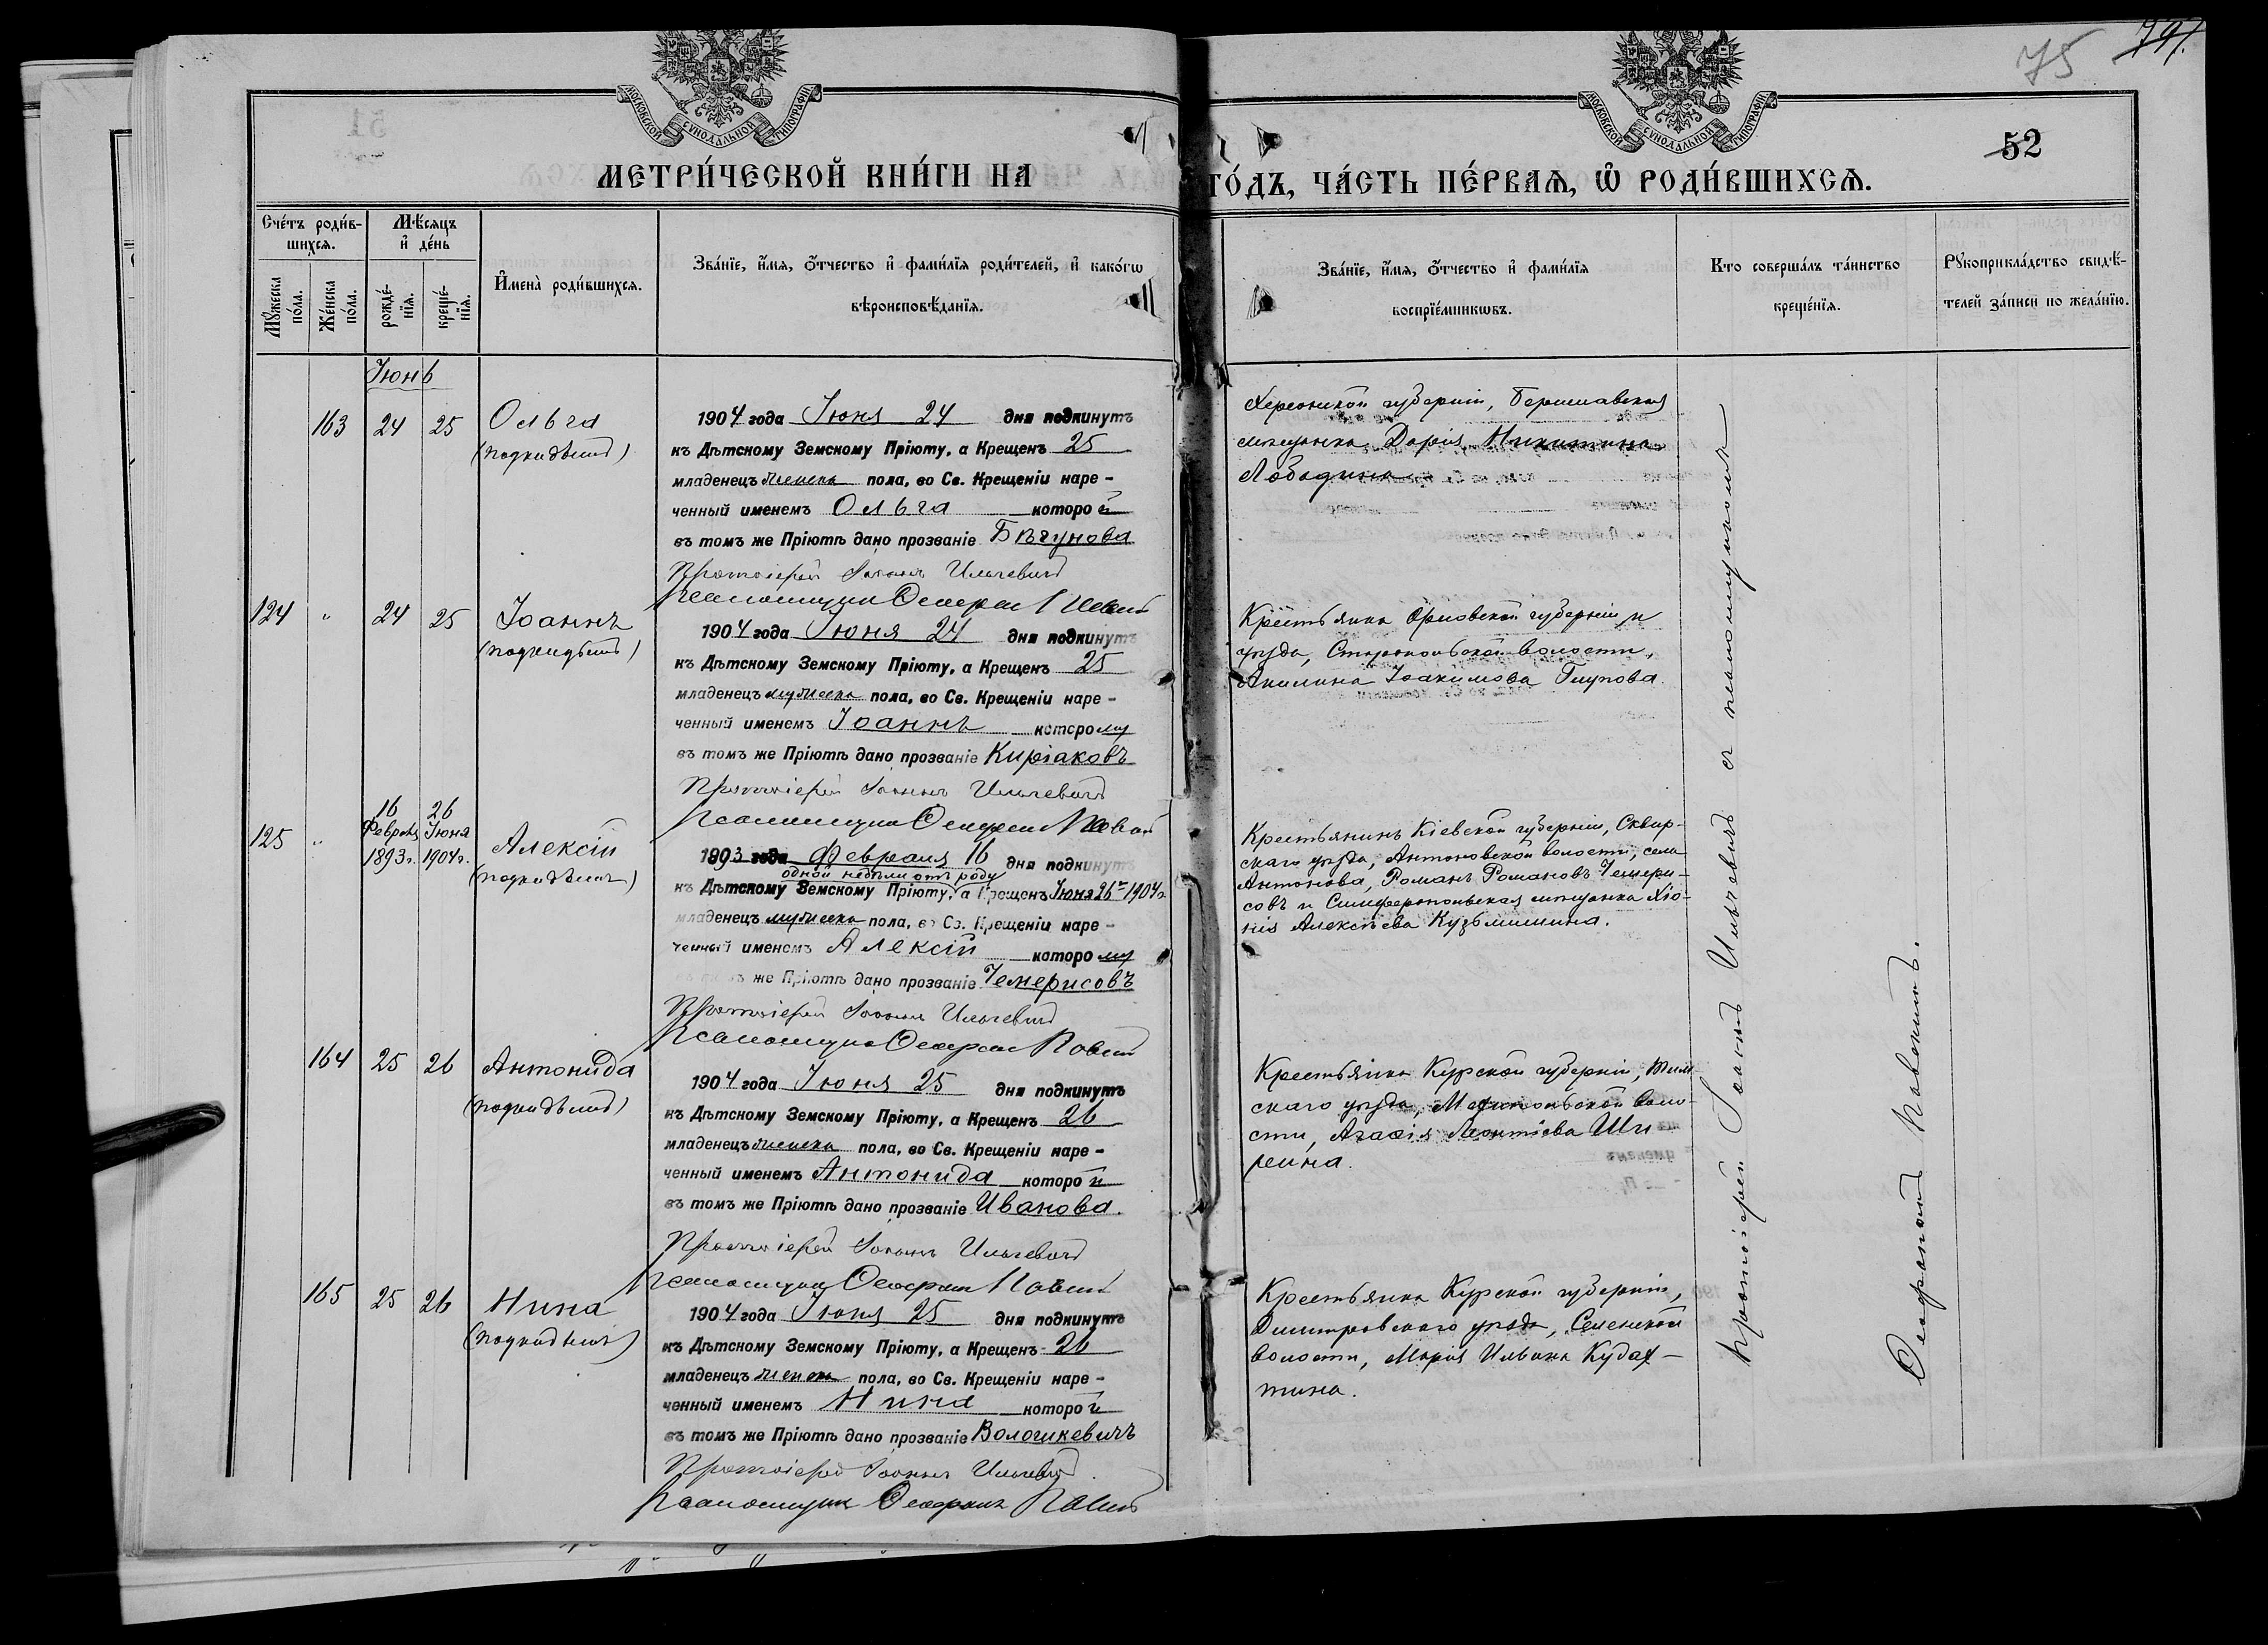 75
52
МОСКОВСКОЙ СѴНОДАЛЬНОЙ ТИПОГРАФІИ
МОСКОВСКОЙ СѴНОДАЛЬНОЙ ТИПОГРАФІИ
МЕТРИ́ЧЕСКОЙ КНИ́ГИ НА ГО́ДЪ, ЧА́СТЬ ПЕ́РВАѦ, Ѡ҆ РОДИ́ВШИХСѦ.
Сче́тъ роди́в-
шихсѧ.
Мꙋ́жеска по́ла.
Же́нска по́ла.
Мѣ́сѧцъ
и҆ де́нь
рожде́-
нїѧ.
креще́-
нїѧ.
И҆мена̀ роди́вшихсѧ.
Зва́нїе, и҆́мѧ, ѻ҆́тчество и҆ фами́лїѧ роди́телей, и҆ како́гѡ
вѣроисповѣ́данїѧ.
Зва́нїе, и҆́мѧ, ѻ҆́тчество и҆ фами́лїѧ
воспрїе́мникѡвъ.
Кто соверша́лъ та́инство
креще́нїѧ.
Рꙋкоприкла́дство свидѣ́-
телей за́писи по жела́нїю.
Іюнь
163 24 25 Ольга
(подкидышъ)
1904 года Іюня 24 дня подкинутъ
къ Дѣтскому Земскому Пріюту, а Крещенъ 25
младенецъ женска пола, во Св. Крещеніи наре-
ченный именемъ Ольга которой
въ томъ же Пріютѣ дано прозваніе Бѣгунова
Протоіерей Іоаннъ Ильчевичъ
Псаломщикъ
Херсонской губерніи, Бериславская
мѣщанка Дарія Никитина
Лободина
124 " 24 25 Іоаннъ
(подкидышъ)
1904 года Іюня 24 дня подкинутъ
къ Дѣтскому Земскому Пріюту, а Крещенъ 25
младенецъ мужеска пола, во Св. Крещеніи наре-
ченный именемъ Іоаннъ которому
въ томъ же Пріютѣ дано прозваніе Киріаковъ
Протоіерей Іоаннъ Ильчевичъ
Псаломщикъ
Крестьянка Орловской губерніи и
уѣзда, волости,
Акилина Іоакимова
125 " 16 Февраля 1893 г. 26 Іюня 1904 г. Алексій
(подкидышъ)
1893 года Февраля 16 дня подкинутъ
одной недѣли отъ роду
къ Дѣтскому Земскому Пріюту, а Крещенъ Іюня 26 1904 г.
младенецъ мужеска пола, во Св. Крещеніи наре-
ченный именемъ Алексій которому
въ томъ же Пріютѣ дано прозваніе Чемерисовъ
Протоіерей Іоаннъ Ильчевичъ
Псаломщикъ
Крестьянинъ Кіевской губерніи, Сквир-
скаго уѣзда, Антоновской волости, села
Антонова, Романъ Романовъ Чемери-
совъ и Симферопольская мѣщанка Хіо-
нія Алексѣева Кузьминина.
164 25 26 Антонида
(подкидышъ)
1904 года Іюня 25 дня подкинутъ
къ Дѣтскому Земскому Пріюту, а Крещенъ 26
младенецъ женска пола, во Св. Крещеніи наре-
ченный именемъ Антонида которой
въ томъ же Пріютѣ дано прозваніе Иванова.
Протоіерей Іоаннъ Ильчевичъ
Псаломщикъ
Крестьянка Курской губерніи, Тим-
скаго уѣзда, воло-
сти, Агафія Леонтіева
165 25 26 Нина
(подкидышъ)
1904 года Іюня 25 дня подкинутъ
къ Дѣтскому Земскому Пріюту, а Крещенъ 26
младенецъ женска пола, во Св. Крещеніи наре-
ченный именемъ Нина которой
въ томъ же Пріютѣ дано прозваніе Волошкевичъ
Протоіерей Іоаннъ Ильчевичъ
Псаломщикъ
Крестьянка Курской губерніи,
Дмитровскаго уѣзда,
волости, Марія Ильина
Протоіерей Іоаннъ Ильчевичъ съ псаломщикомъ